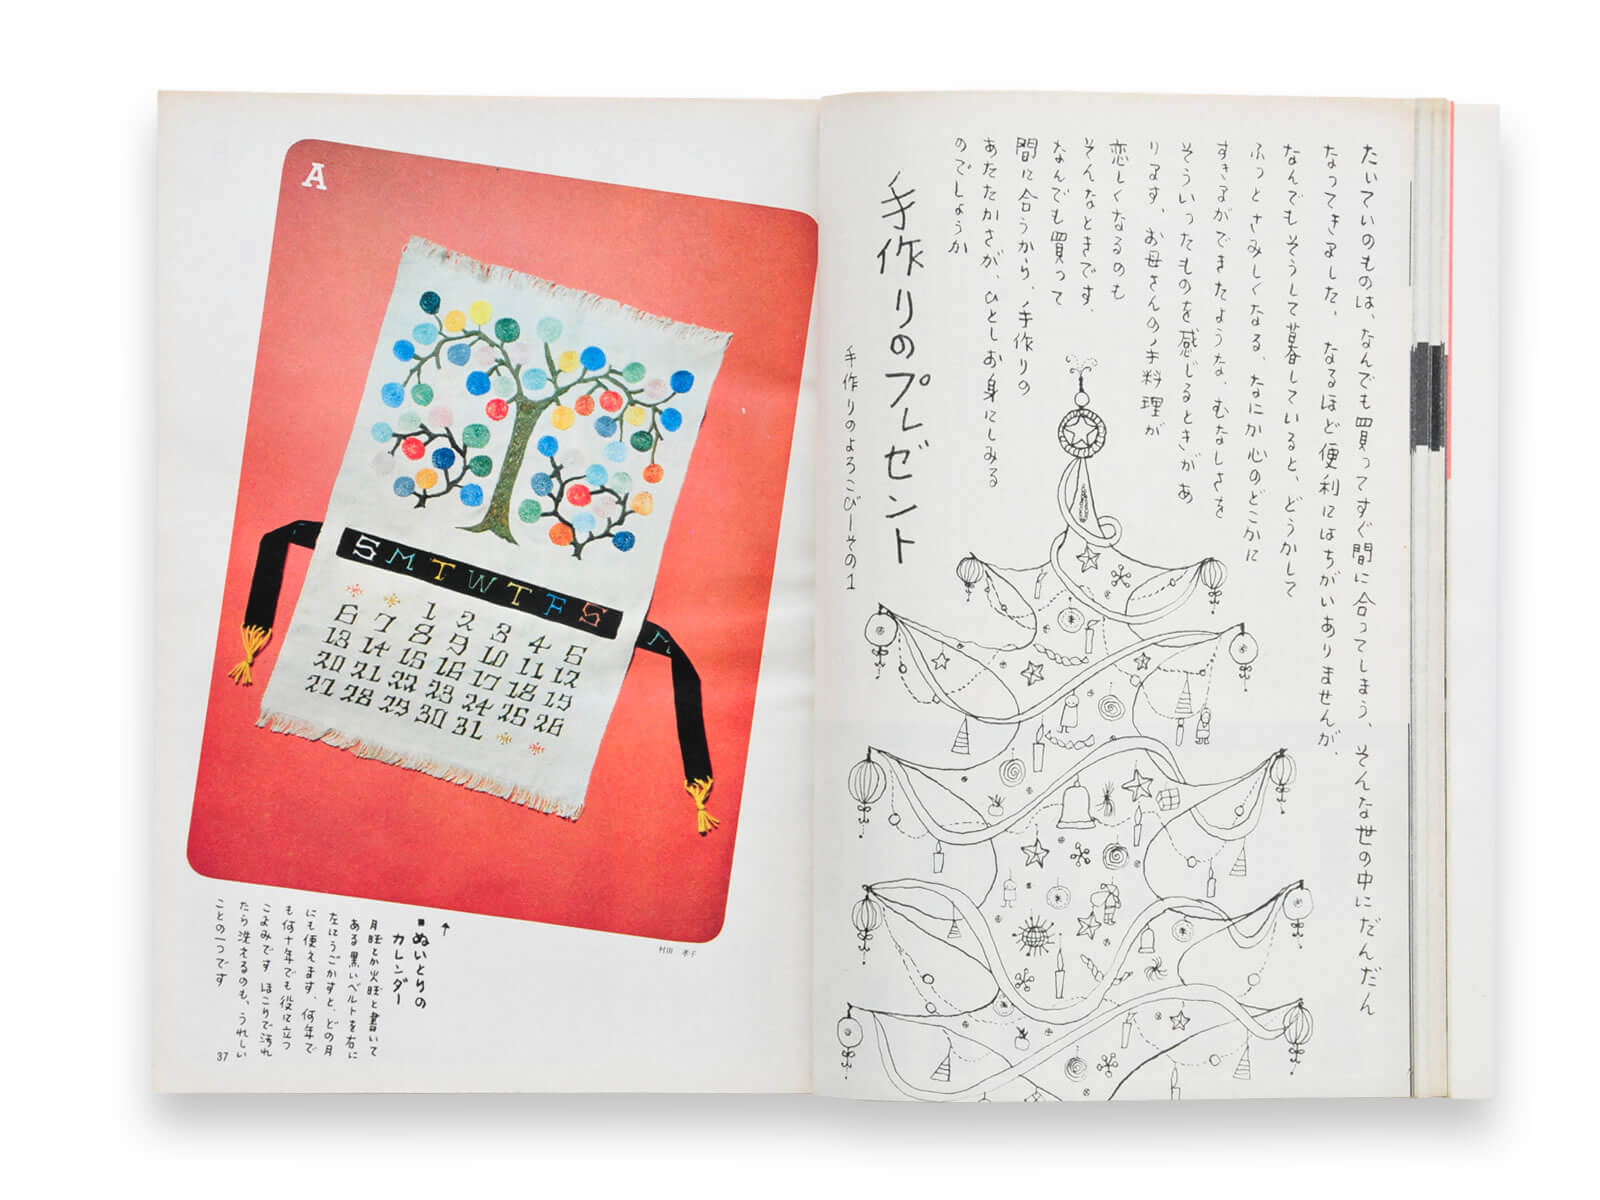 たいていのものは、なんでも買ってすぐ間に合ってしまう、そんな世の中にだんだん
なってきました、なるほど便利にはちがいありませんが、
なんでもそうして暮していると、どうかして
ふっとさみしくなる、なにか心のどこかに
すきまができたような、むなしさを
そういったものを感じるときがあ
ります、お母さんの手料理が
恋しくなるのも
そんなときです、
なんでも買って
間に合うから、手作りの
あたたかさが、ひとしお身にしみる
のでしょうか
手作りのプレゼント
手作りのよろこびーその1
A
S M T W T F S M
1 2 3 4 5
6 7 8 9 10 11 12
13 14 15 16 17 18 19
20 21 22 23 24 25 26
27 28 29 30 31
村田 孝子
↑
■ぬいとりの
カレンダー
月旺とか火旺と書いて
ある黒いベルトを右に
左にうごかすと、どの月
にも使えます、何年で
も何十年でも役に立つ
こよみです ほこりで汚れ
たら洗えるのも、うれしい
ことの一つです
37